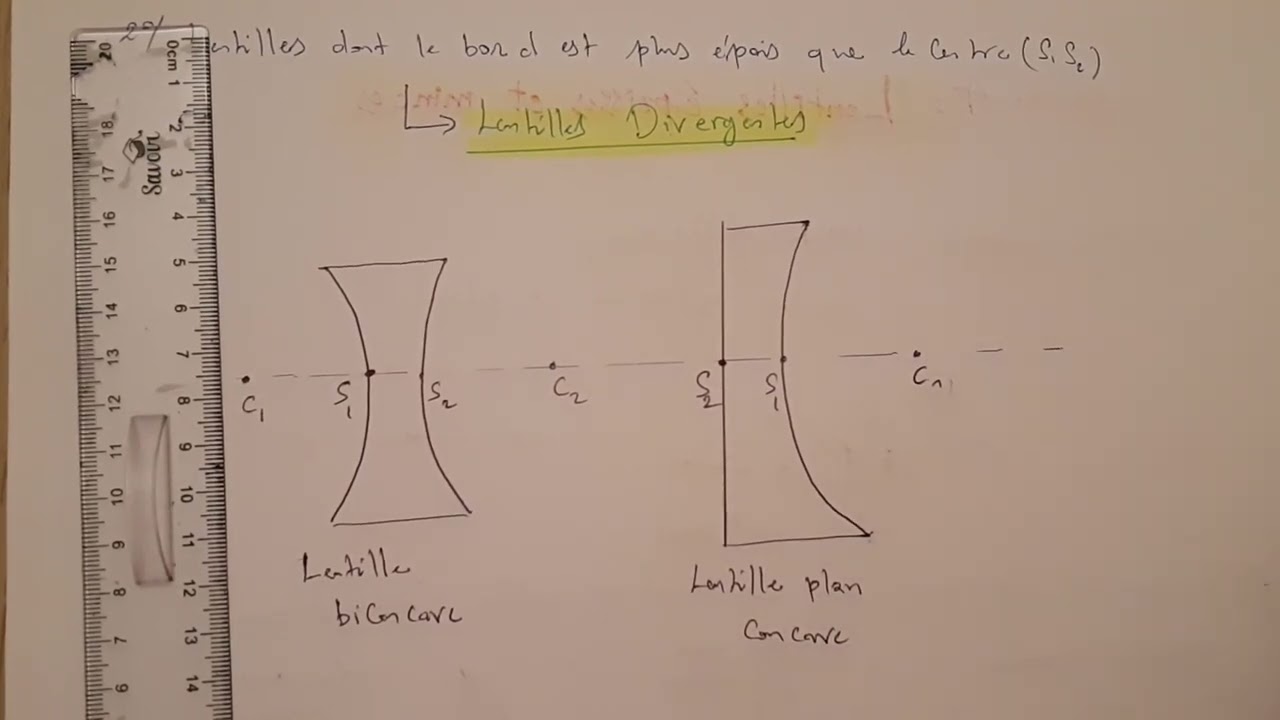 2°/ Lentilles dont le bord est plus épais que le centre (S1 S2)
↳ Lentilles Divergentes
C1 S1 S2 C2 S2 S1 C1
Lentille
biconcave
Lentille plan
concave
Savas
0cm 1 2 3 4 5 6 7 8 9 10 11 12 13 14
20 18 17 16 15 14 13 12 11 10 9 8 7 6